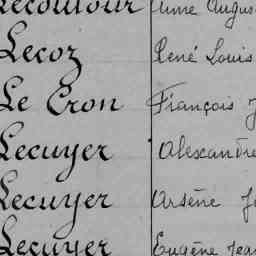 Lecoutour Anne Augus
Lecoz René Louis
Le Cron François J
Lecuyer Alexandre
Lecuyer Arsène Je
Lecuyer Eugène Jean